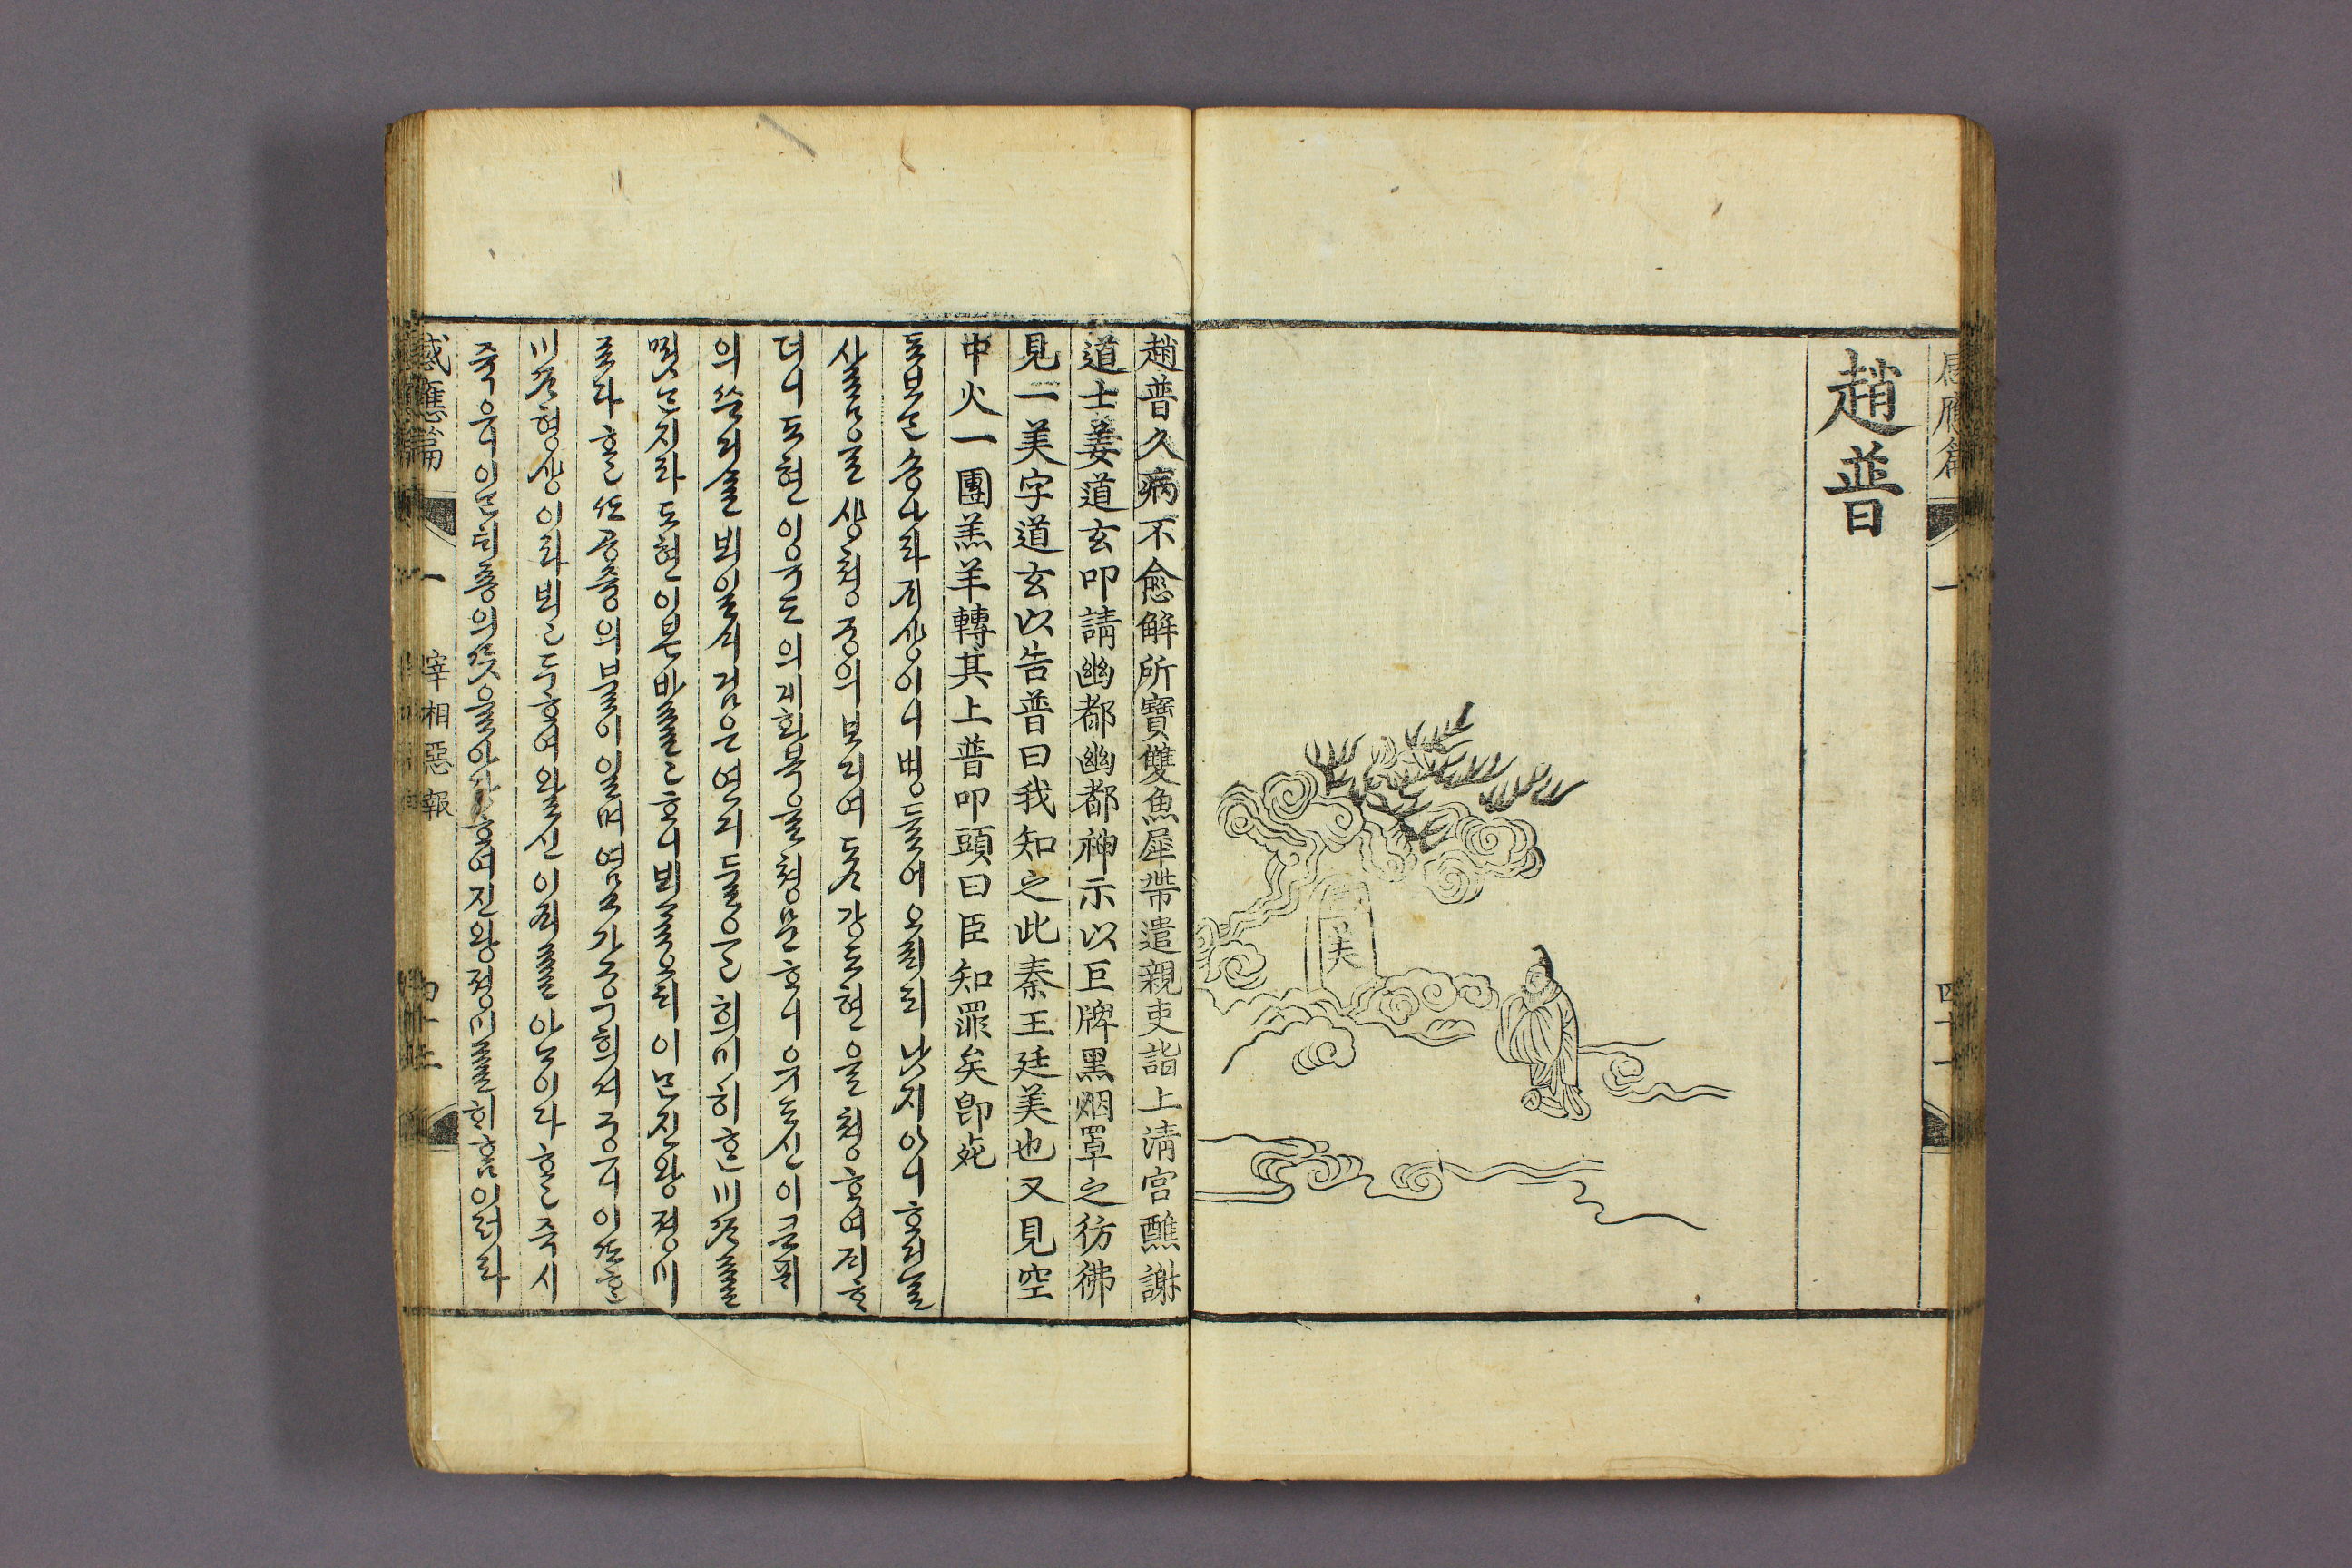 感應篇 一 四十一
趙普
美
趙普久病不愈解所寶雙魚犀帶遣親吏詣上淸宮醮謝
道士姜道玄叩請幽都幽都神示以巨牌黑烟罩之彷彿
見一美字道玄以告普曰我知之此秦王廷美也又見空
中火一團羔羊轉其上普叩頭曰臣知罪矣卽死
됴보ᄂᆞᆫ송나라ᄌᆡ상이니병들어오ᄅᆡ되낫지아니ᄒᆞ거ᄂᆞᆯ
사ᄅᆞᆷ을샹쳥궁의보ᄂᆡ여도ᄉᆞ강도현을쳥ᄒᆞ여ᄌᆡᄒᆞ
더니도현이유도의게화복을쳥문ᄒᆞ니유도신이큰ᄑᆡ
의쓴거ᄉᆞᆯ뵈일ᄉᆡ검은연긔들은희미히ᄒᆞᆫ미ᄍᆞᄅᆞᆯ
지라도현이본바ᄅᆞᆯᄒᆞ니이ᄂᆞᆫ진왕졍미
로라ᄒᆞ고ᄯᅩ공즁의불이일며염소가
미ᄍᆞ형상이라ᄒᆞ여왈신이죄ᄅᆞᆯ아ᄂᆞ이다ᄒᆞ고즉시
죽으니이ᄂᆞᆫ태종의ᄯᅳᆺ을아당ᄒᆞ여진왕졍미ᄅᆞᆯᄒᆡᄒᆞᆷ이러라
感應篇 一 宰相惡報